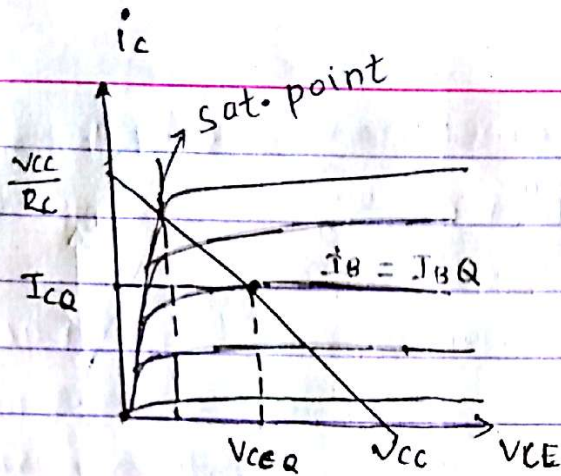 ic
sat. point
VCC
RC
iB = IBQ
ICQ
VCEQ
VCC
VCE